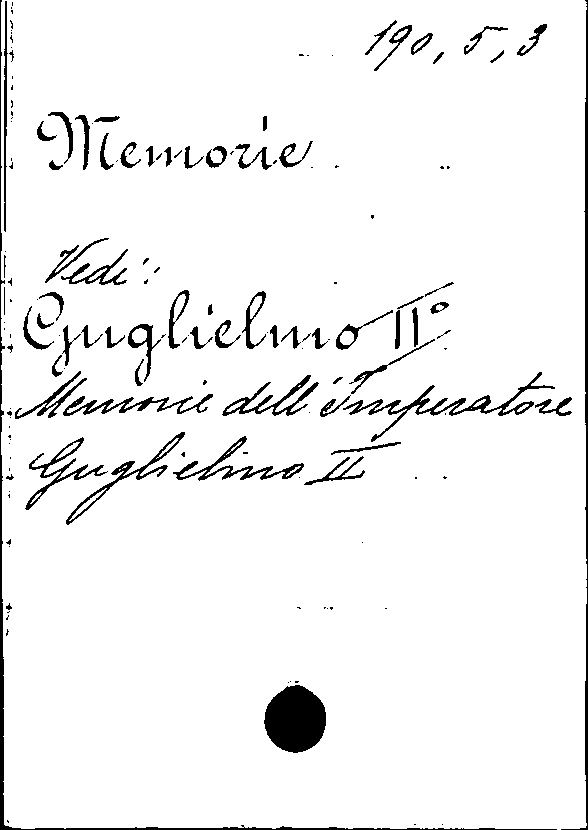 190, 5, 3
Memorie
Vedi:
Guglielmo II°
Memorie dell'Imperatore
Guglielmo II